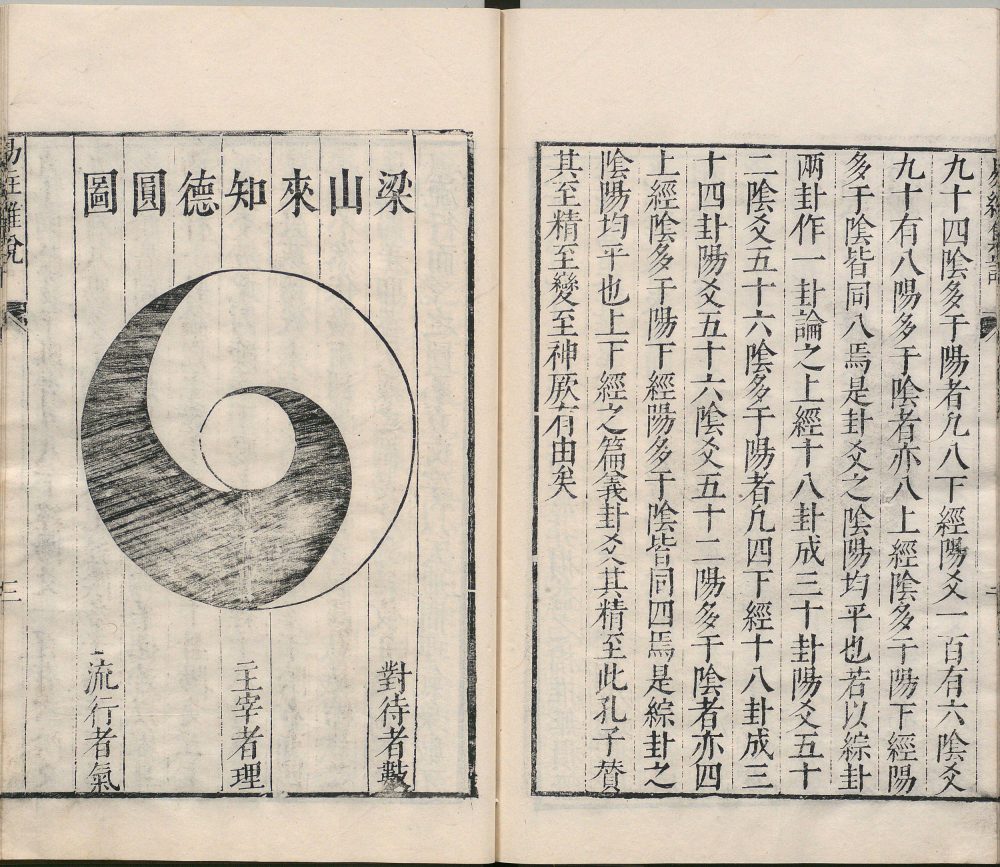 九十四陰多于陽者凡八下經陽爻一百有六陰爻
九十有八陽多于陰者亦八上經陰多于陽下經陽
多于陰皆同八焉是卦爻之陰陽均平也若以綜卦
兩卦作一卦論之上經十八卦成三十卦陽爻五十
二陰爻五十六陰多于陽者凡四下經十八卦成三
十四卦陽爻五十六陰爻五十二陽多于陰者亦四
上經陰多于陽下經陽多于陰皆同四焉是綜卦之
陰陽均平也上下經之篇義卦爻其精至此孔子贊
其至精至變至神厥有由矣
梁山來知德圓圖
對待者數
主宰者理
流行者氣
易註雜說
三